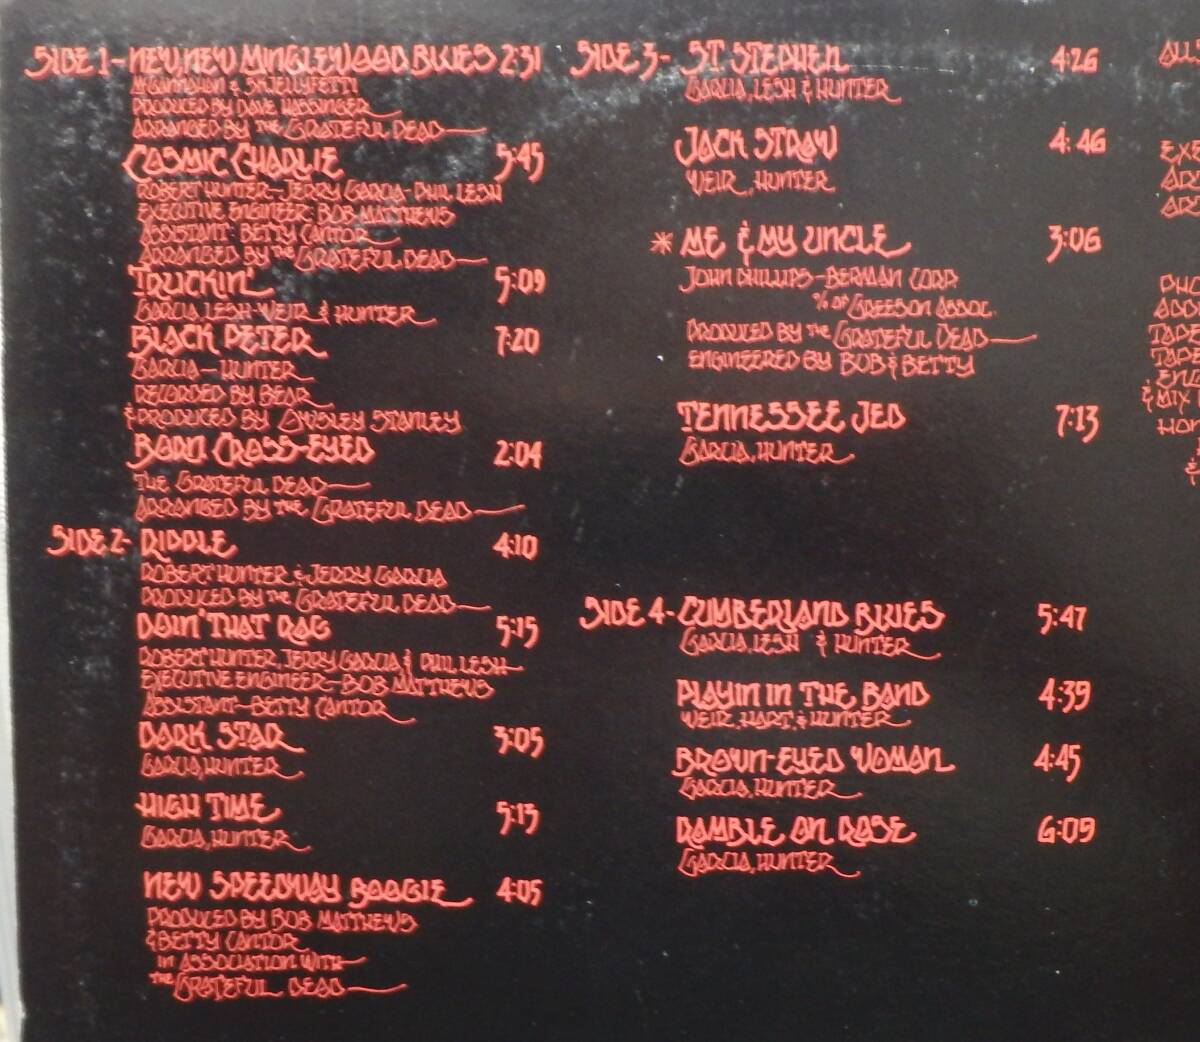 SIDE 1- NEW, NEW MINGLEWOOD BLUES 2:31
MCGANNAHAN & SKJELLYFETTI
PRODUCED BY DAVE HASSINGER
ARRANGED BY THE GRATEFUL DEAD
COSMIC CHARLIE 5:45
ROBERT HUNTER-JERRY GARCIA-PHIL LESH
EXECUTIVE ENGINEER BOB MATTHEWS
ASSISTANT: BETTY CANTOR
ARRANGED BY THE GRATEFUL DEAD
TRUCKIN' 5:09
GARCIA, LESH-WEIR & HUNTER
BLACK PETER 7:20
GARCIA-HUNTER
RECORDED BY BEAR
& PRODUCED BY OWSLEY STANLEY
BORN CROSS-EYED 2:04
THE GRATEFUL DEAD
ARRANGED BY THE GRATEFUL DEAD
SIDE 2- RIPPLE 4:10
ROBERT HUNTER & JERRY GARCIA
PRODUCED BY THE GRATEFUL DEAD
DOIN' THAT RAG 5:15
ROBERT HUNTER, JERRY GARCIA & PHIL LESH
EXECUTIVE ENGINEER-BOB MATTHEWS
ASSISTANT-BETTY CANTOR
DARK STAR 3:05
GARCIA, HUNTER
HIGH TIME 5:13
GARCIA, HUNTER
NEW SPEEDWAY BOOGIE 4:05
PRODUCED BY BOB MATTHEWS
& BETTY CANTOR
IN ASSOCIATION WITH
THE GRATEFUL DEAD
SIDE 3- ST. STEPHEN 4:26
GARCIA, LESH & HUNTER
JACK STRAW 4:46
WEIR, HUNTER
* ME & MY UNCLE 3:06
JOHN PHILLIPS-BERMAN CORP.
% OF GREESON ASSOC.
PRODUCED BY THE GRATEFUL DEAD
ENGINEERED BY BOB & BETTY
TENNESSEE JED 7:13
GARCIA, HUNTER
SIDE 4- CUMBERLAND BLUES 5:47
GARCIA, LESH & HUNTER
PLAYIN IN THE BAND 4:39
WEIR, HART, & HUNTER
BROWN-EYED WOMAN 4:45
GARCIA, HUNTER
RAMBLE ON ROSE 6:09
GARCIA, HUNTER
ALL
EXE
TAPE
TAPE
ENG
& MIX